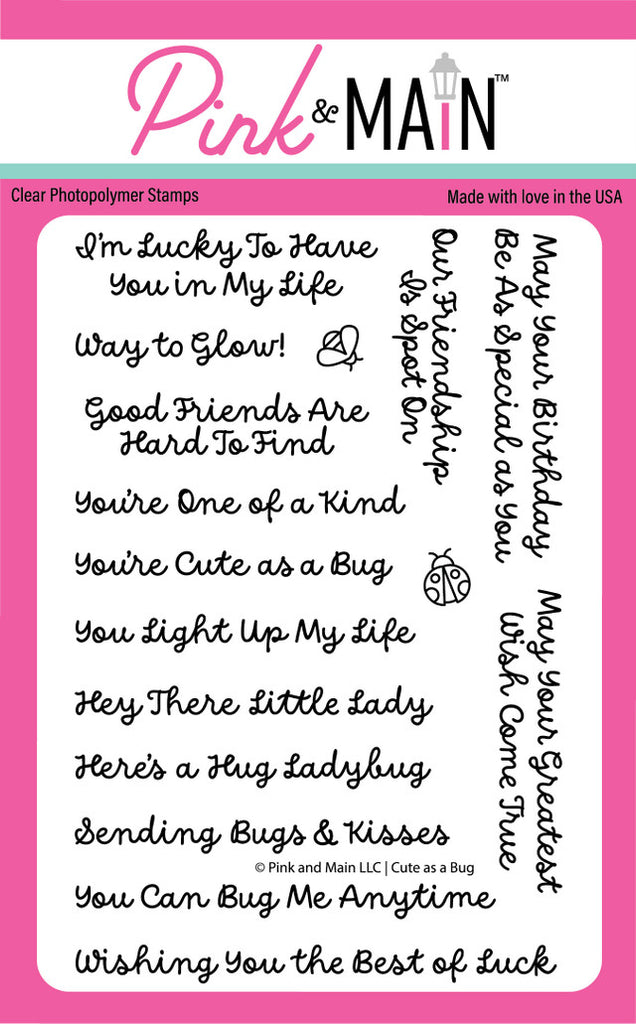 Pink & MAiN™
Clear Photopolymer Stamps
Made with love in the USA
I'm Lucky To Have
You in My Life
Way to Glow!
Good Friends Are
Hard To Find
You're One of a Kind
You're Cute as a Bug
You Light Up My Life
Hey There Little Lady
Here's a Hug Ladybug
Sending Bugs & Kisses
© Pink and Main LLC | Cute as a Bug
You Can Bug Me Anytime
Wishing You the Best of Luck
Our Friendship
Is Spot On
May Your Birthday
Be As Special as You
May Your Greatest
Wish Come True